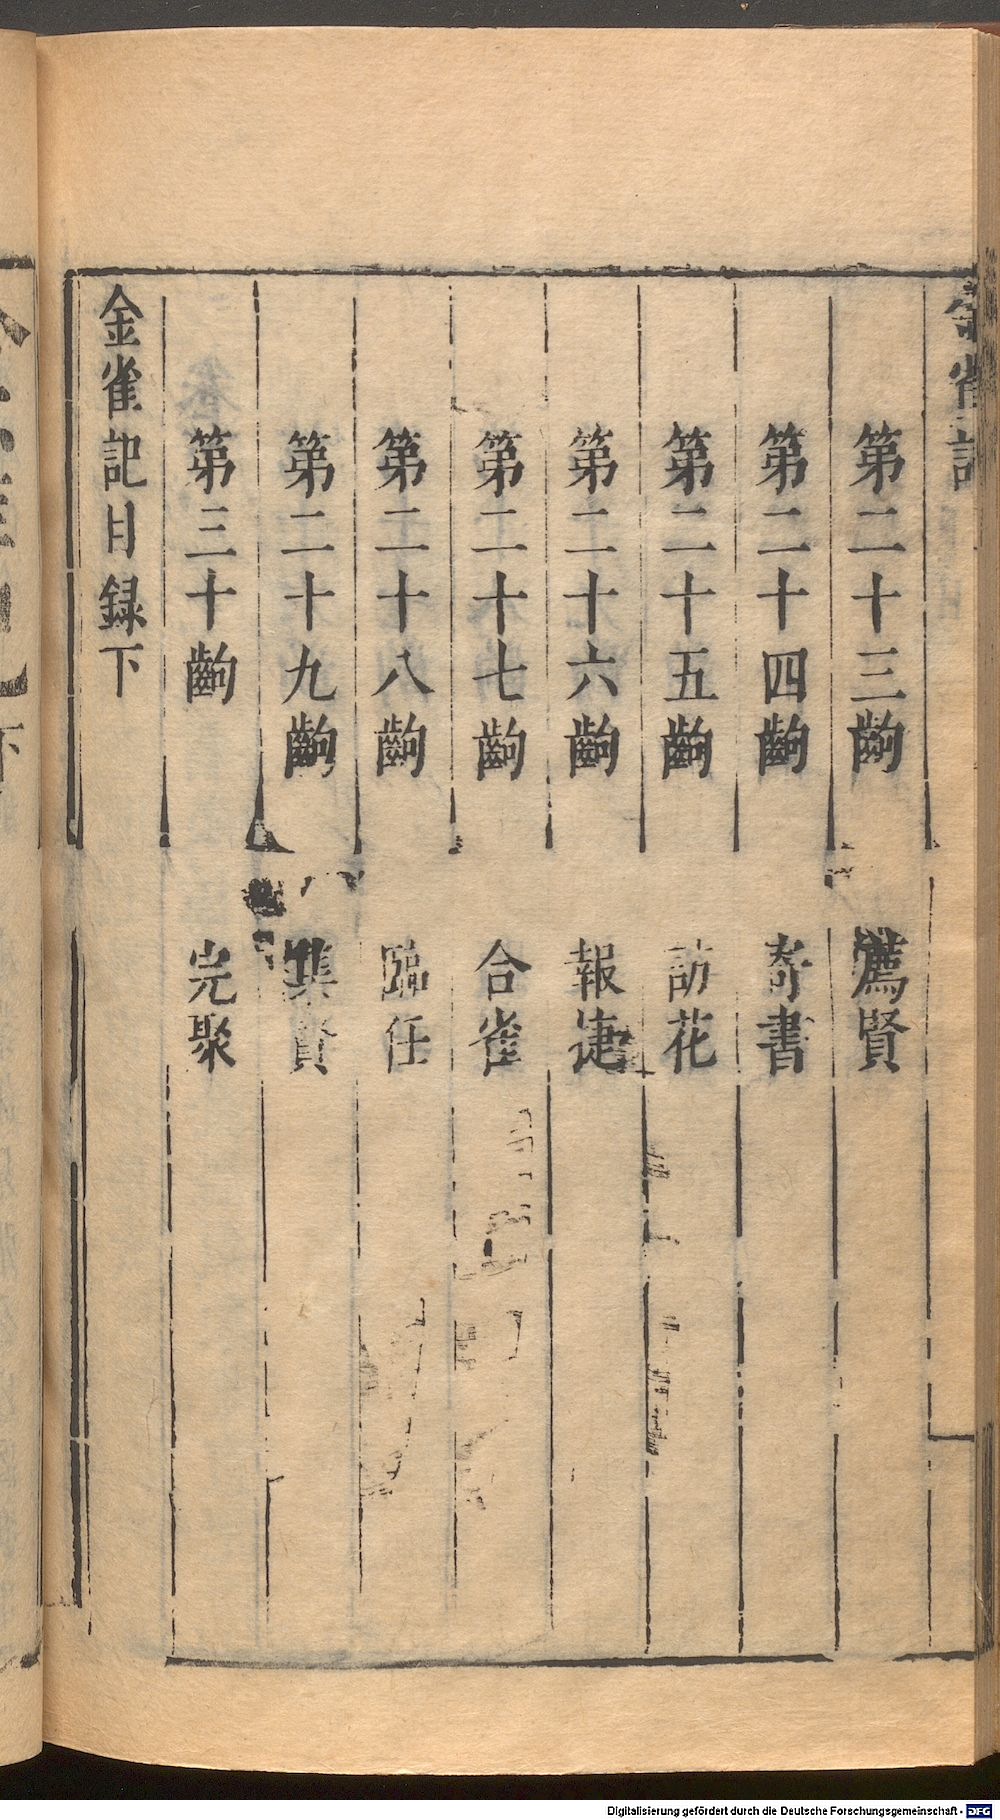 金雀記
第二十三齣 薦賢
第二十四齣 寄書
第二十五齣 訪花
第二十六齣 報捷
第二十七齣 合雀
第二十八齣 臨任
第二十九齣 集賢
第三十齣 完聚
金雀記目録下
Digitalisierung gefördert durch die Deutsche Forschungsgemeinschaft - DFG